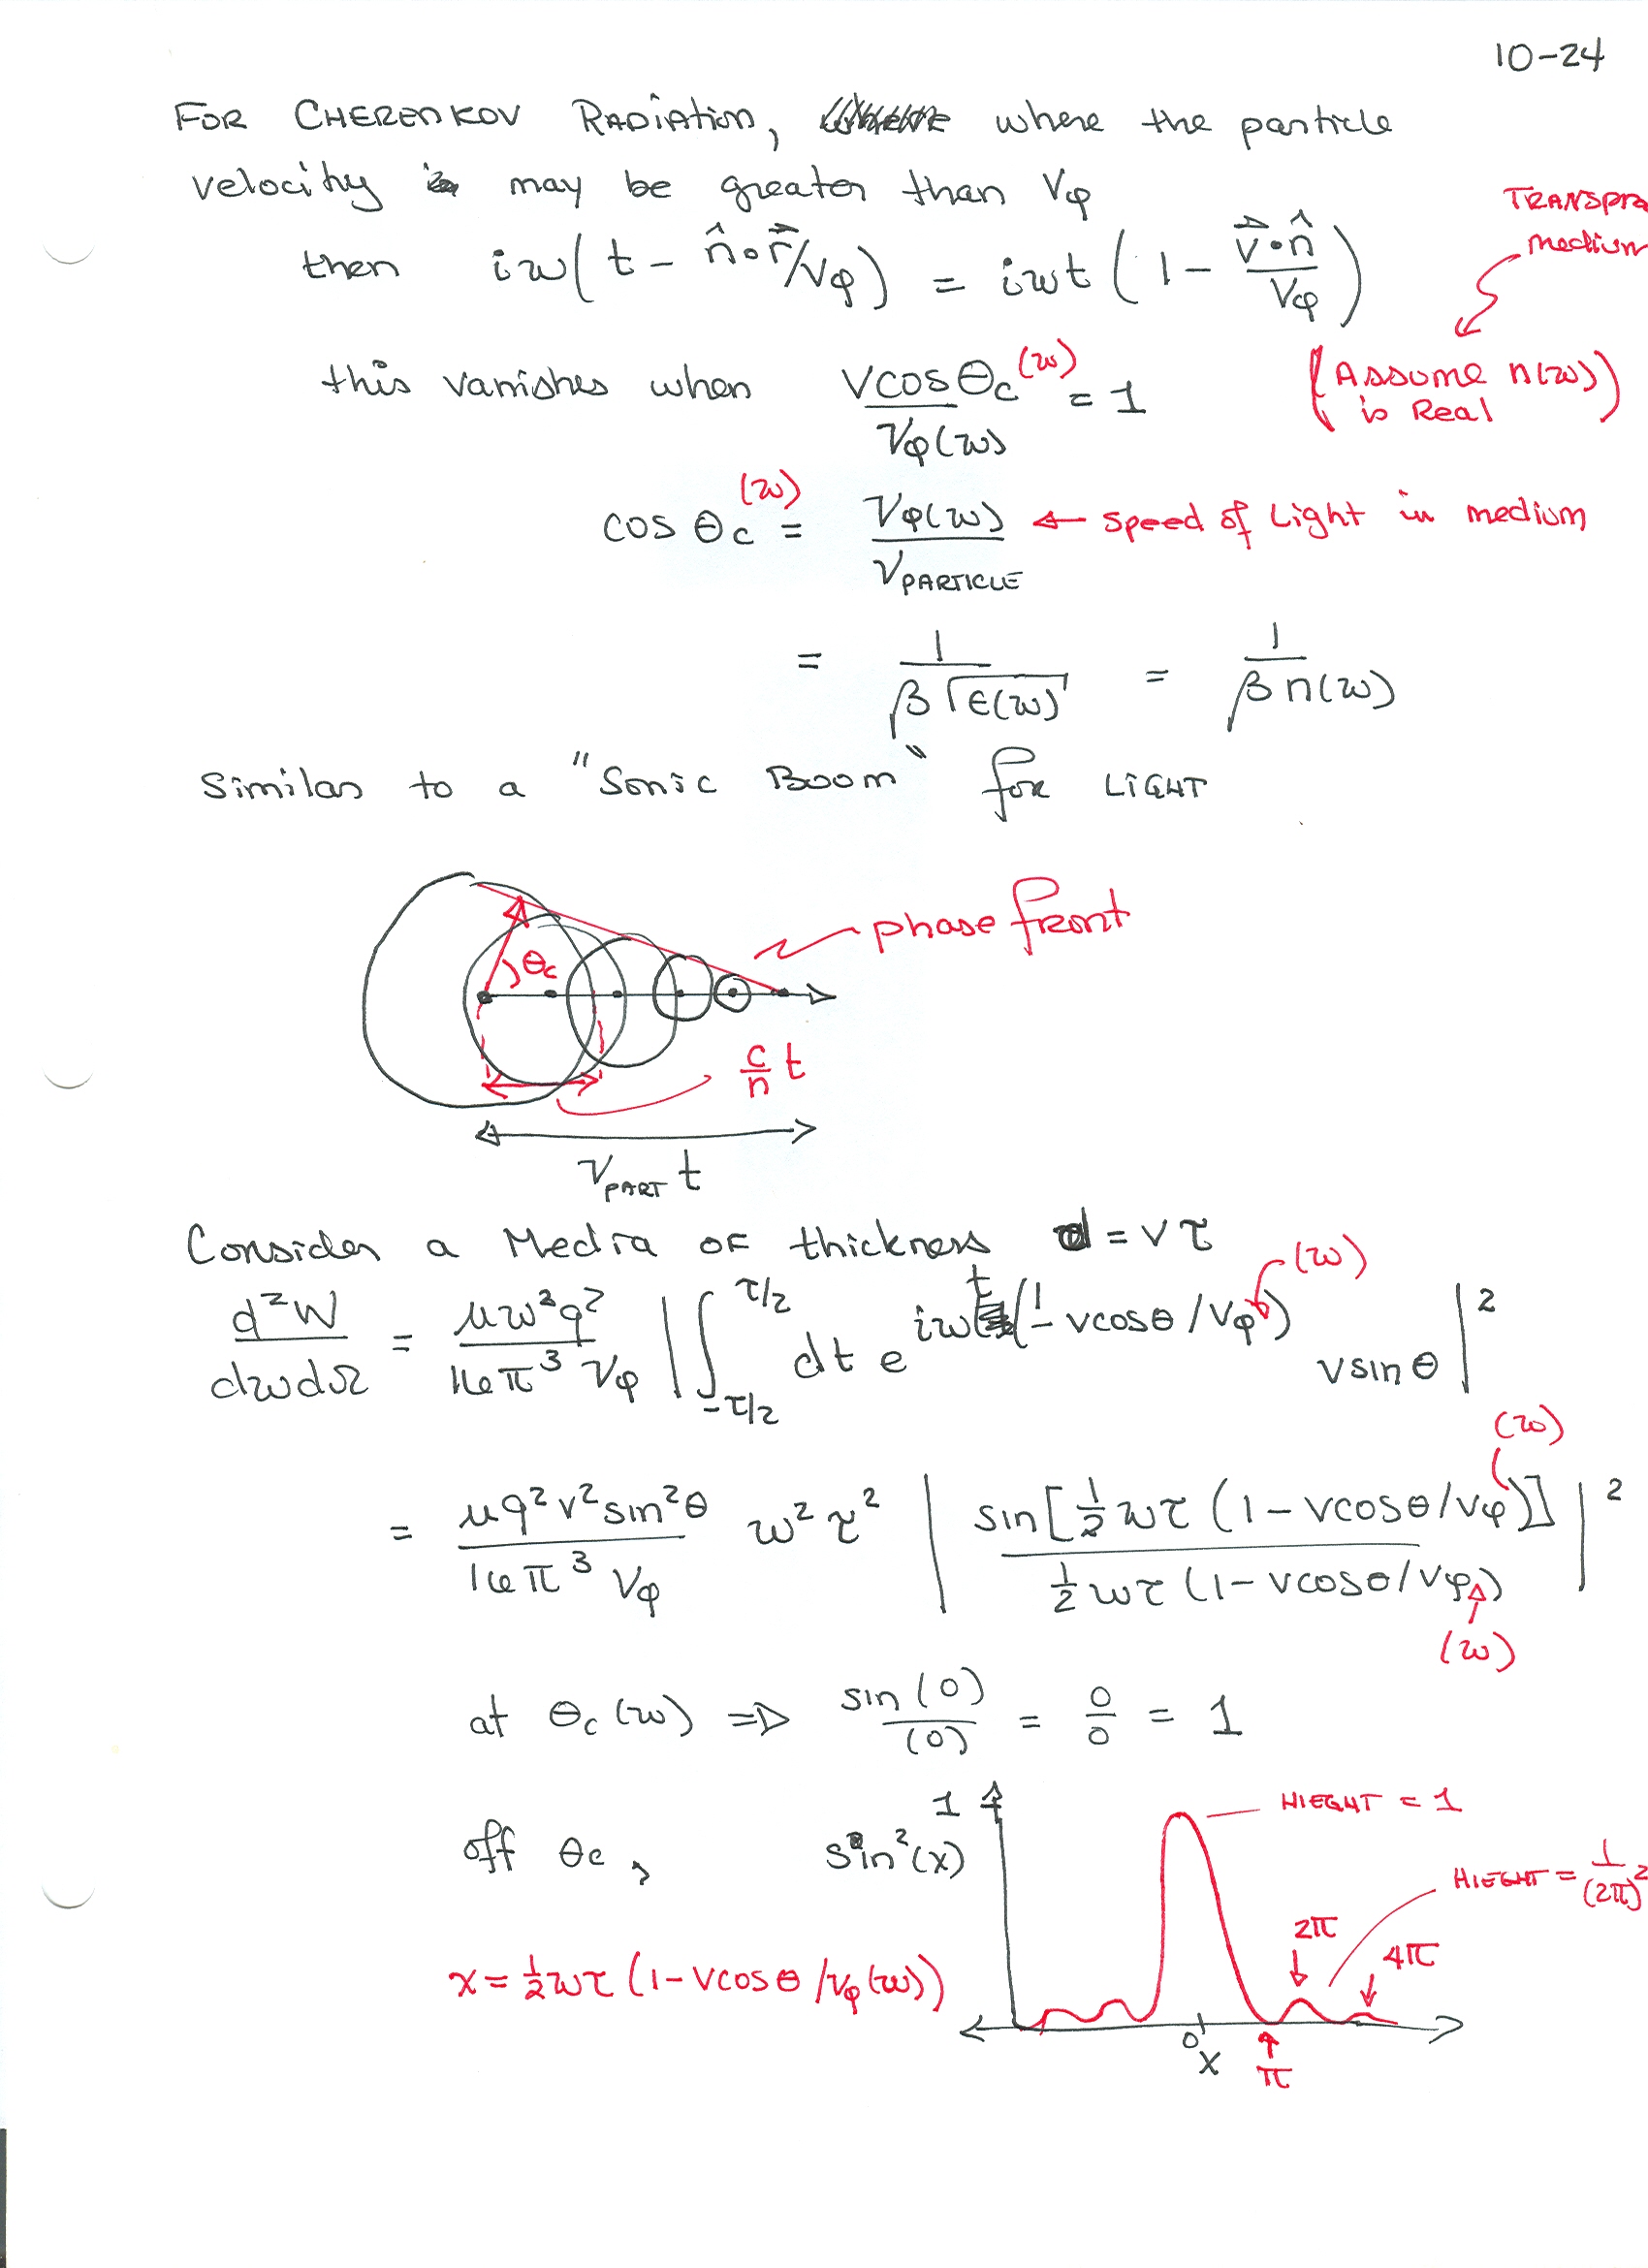 10-24
FOR CHERENKOV RADIATION, where the particle
velocity may be greater than Vφ
TRANSPA
medium
then iω(t - n̂•r⃗/Vφ) = iωt (1 - v⃗•n̂/Vφ)
this vanishes when Vcosθc(ω)/Vφ(ω) = 1
(Assume n(ω)
is Real)
cos θc(ω) = Vφ(ω)/VPARTICLE ← speed of Light in medium
= 1/(β√ε(ω)) = 1/(β n(ω))
Similar to a "Sonic Boom" for LIGHT
phase front
θc
c/n t
VPART t
Consider a Media OF thickness d = vτ
d²W/dωdΩ = μω²q²/(16π³Vφ) |∫_{-τ/2}^{τ/2} dt e^{iωt(1 - vcosθ/Vφ(ω))} vsinθ|²
= μq²v²sin²θ/(16π³Vφ) ω²τ² |sin[½ωτ(1 - vcosθ/Vφ(ω))]/(½ωτ(1 - vcosθ/Vφ(ω)))|²
at θc(ω) ⇒ sin(0)/(0) = 0/0 = 1
1
HIEGHT = 1
off θc,
sin²(x)
HIEGHT = 1/(2π)²
2π
4π
x = ½ωτ(1 - vcosθ/Vφ(ω))
0
X
π